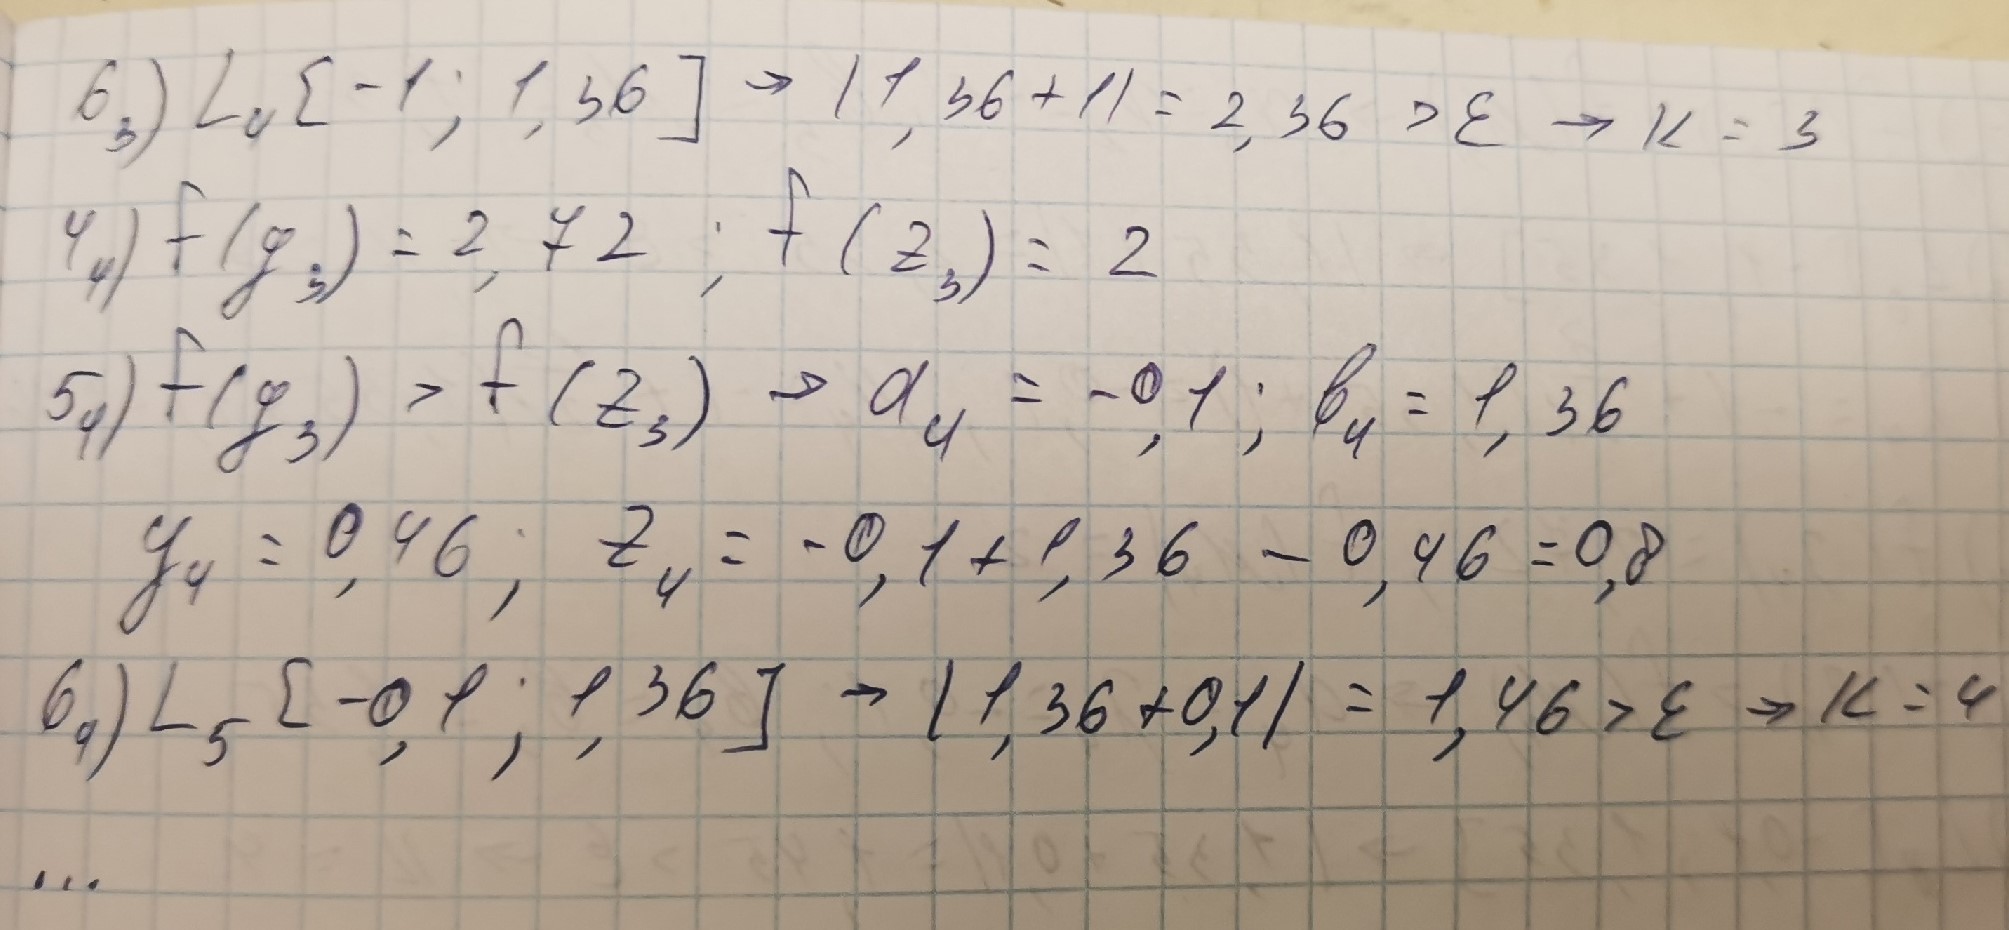 6₃) L₄ [-1; 1,36] → |1,36+1| = 2,36 > ε → K = 3
4₄) f(y₃) = 2,72; f(z₃) = 2
5₄) f(y₃) > f(z₃) → a₄ = -0,1; b₄ = 1,36
y₄ = 0,46; z₄ = -0,1+1,36 - 0,46 = 0,8
6₄) L₅ [-0,1; 1,36] → |1,36+0,1| = 1,46 > ε → K = 4
...